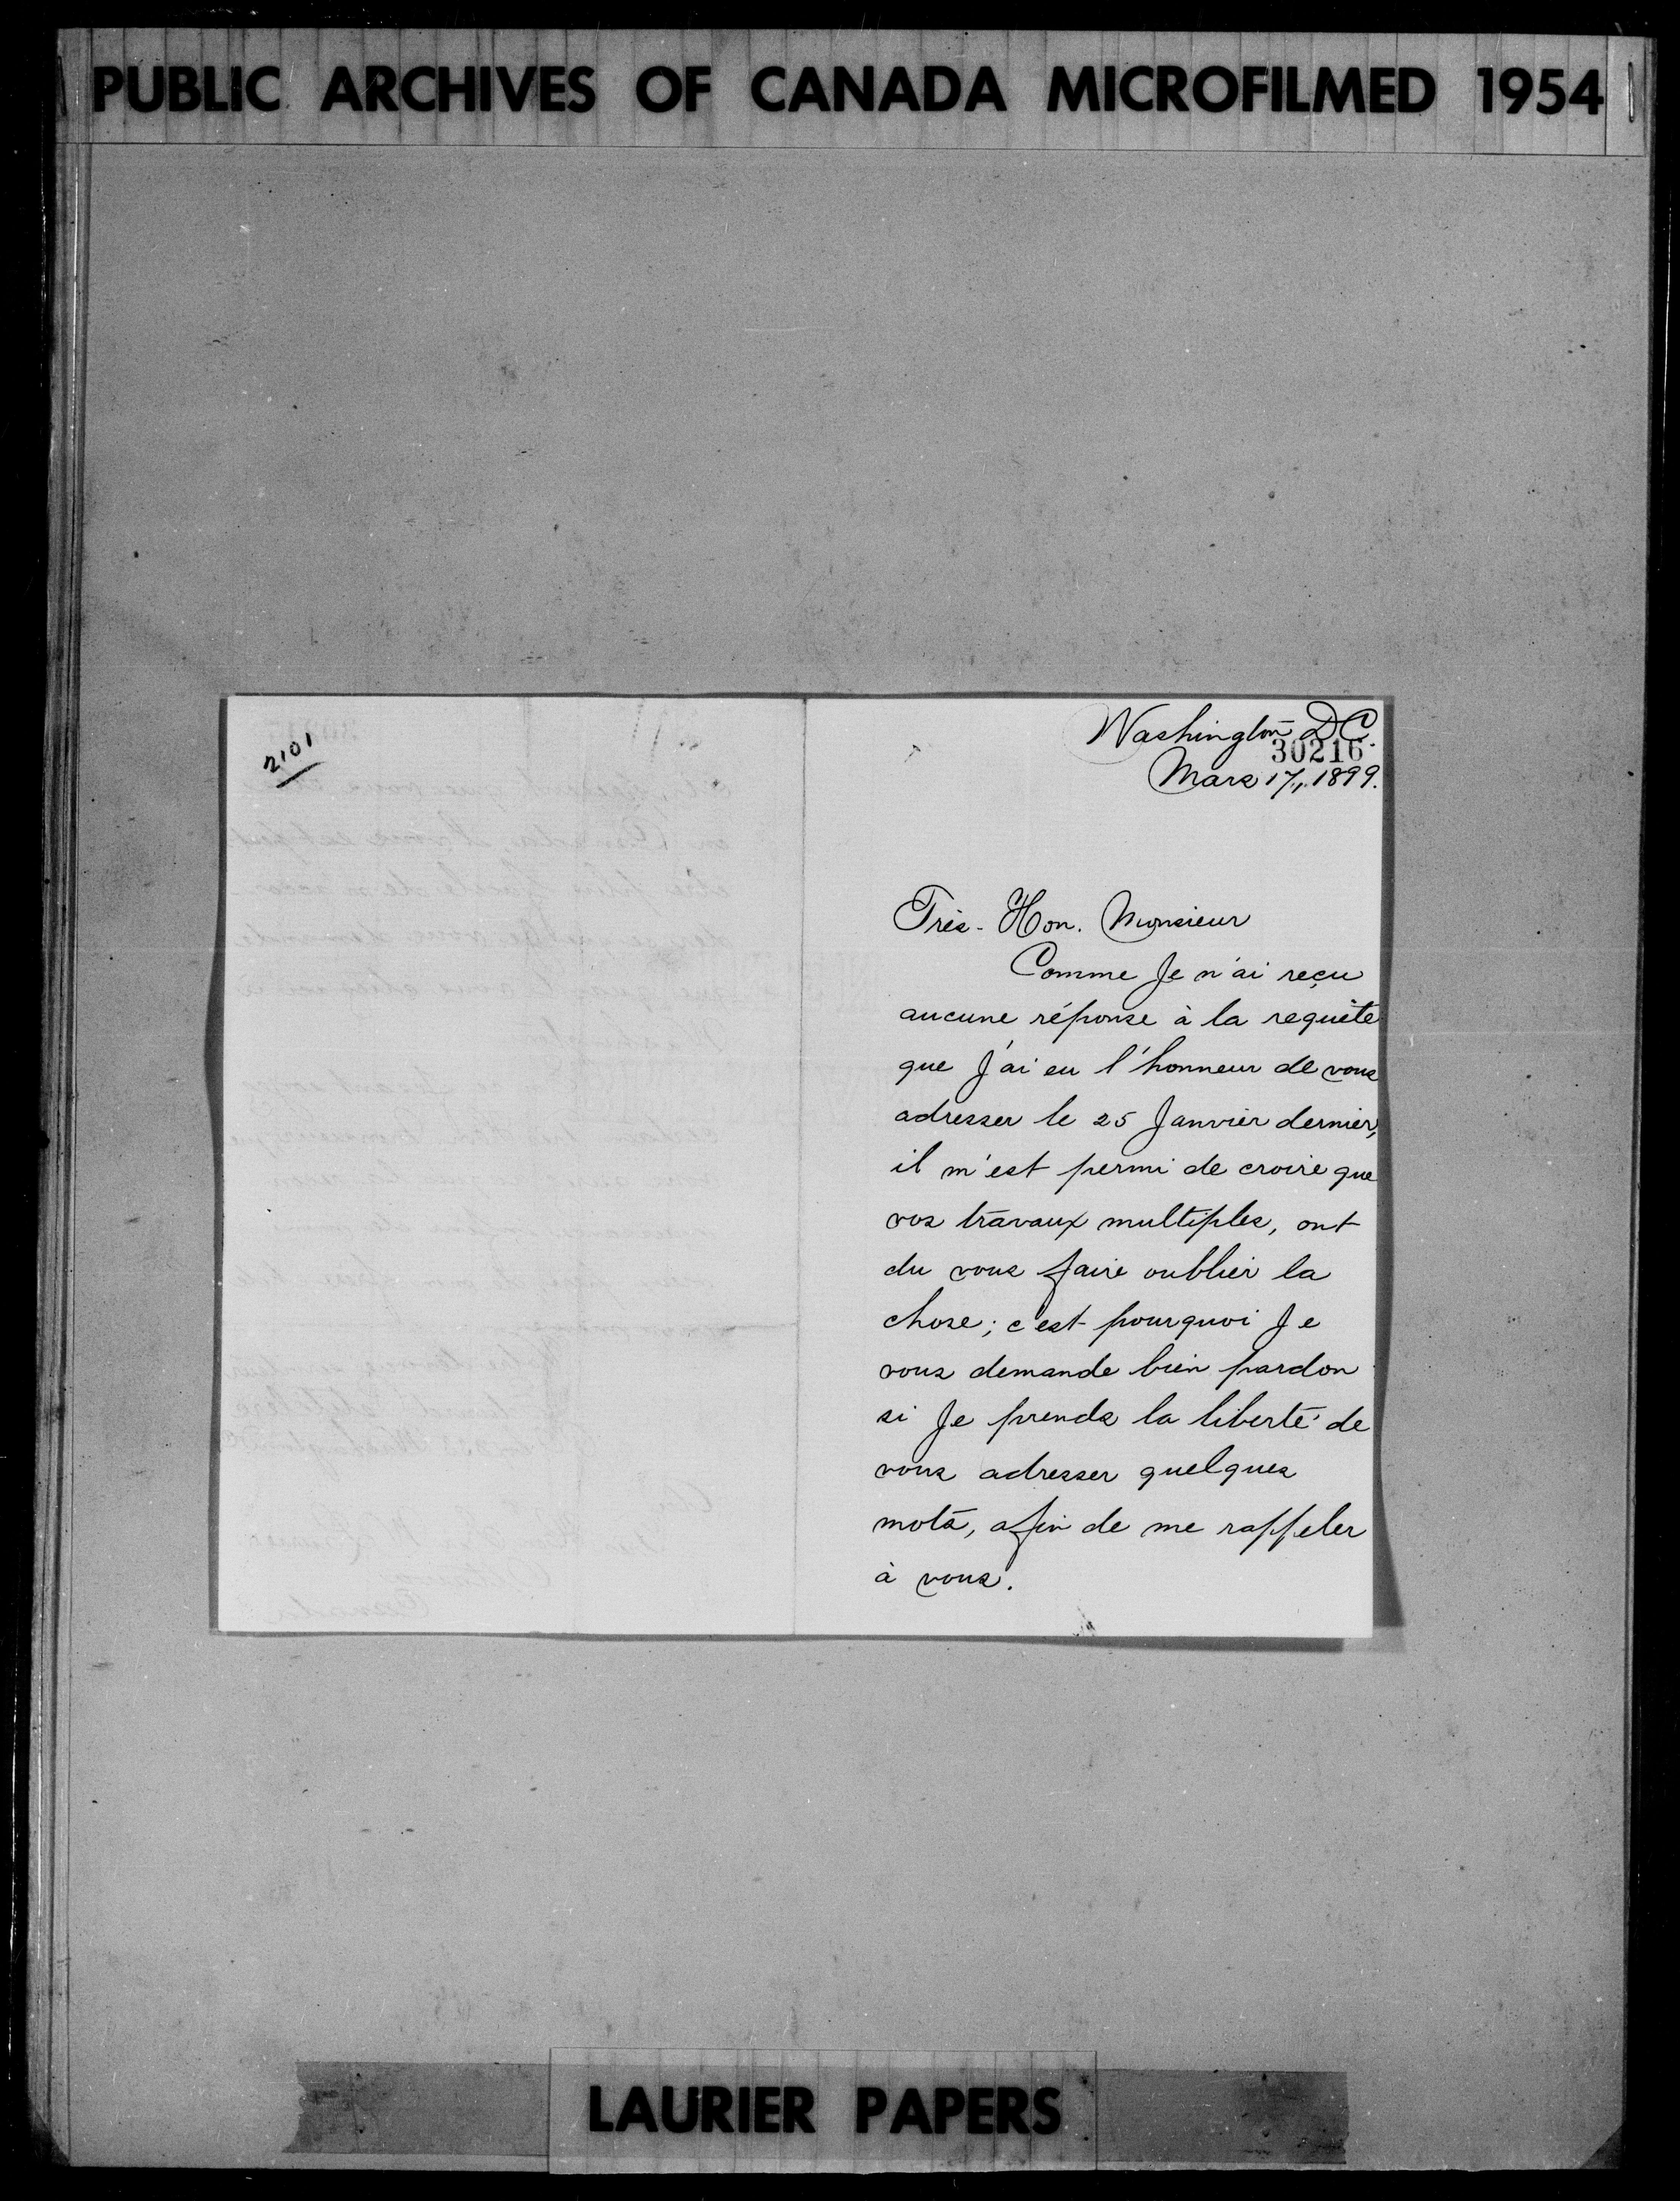 PUBLIC ARCHIVES OF CANADA MICROFILMED 1954
2101
Washington DC.
30216
Mars 17,, 1899.
Très-Hon. Monsieur
Comme Je n'ai reçu
aucune réponse à la requête
que J'ai eu l'honneur de vous
adresser le 25 Janvier dernier,
il m'est permi de croire que
vos travaux multiples, ont
du vous faire oublier la
chose; c'est pourquoi Je
vous demande bien pardon
si Je prends la liberté de
vous adresser quelques
mots, afin de me rappeler
à vous.
LAURIER PAPERS